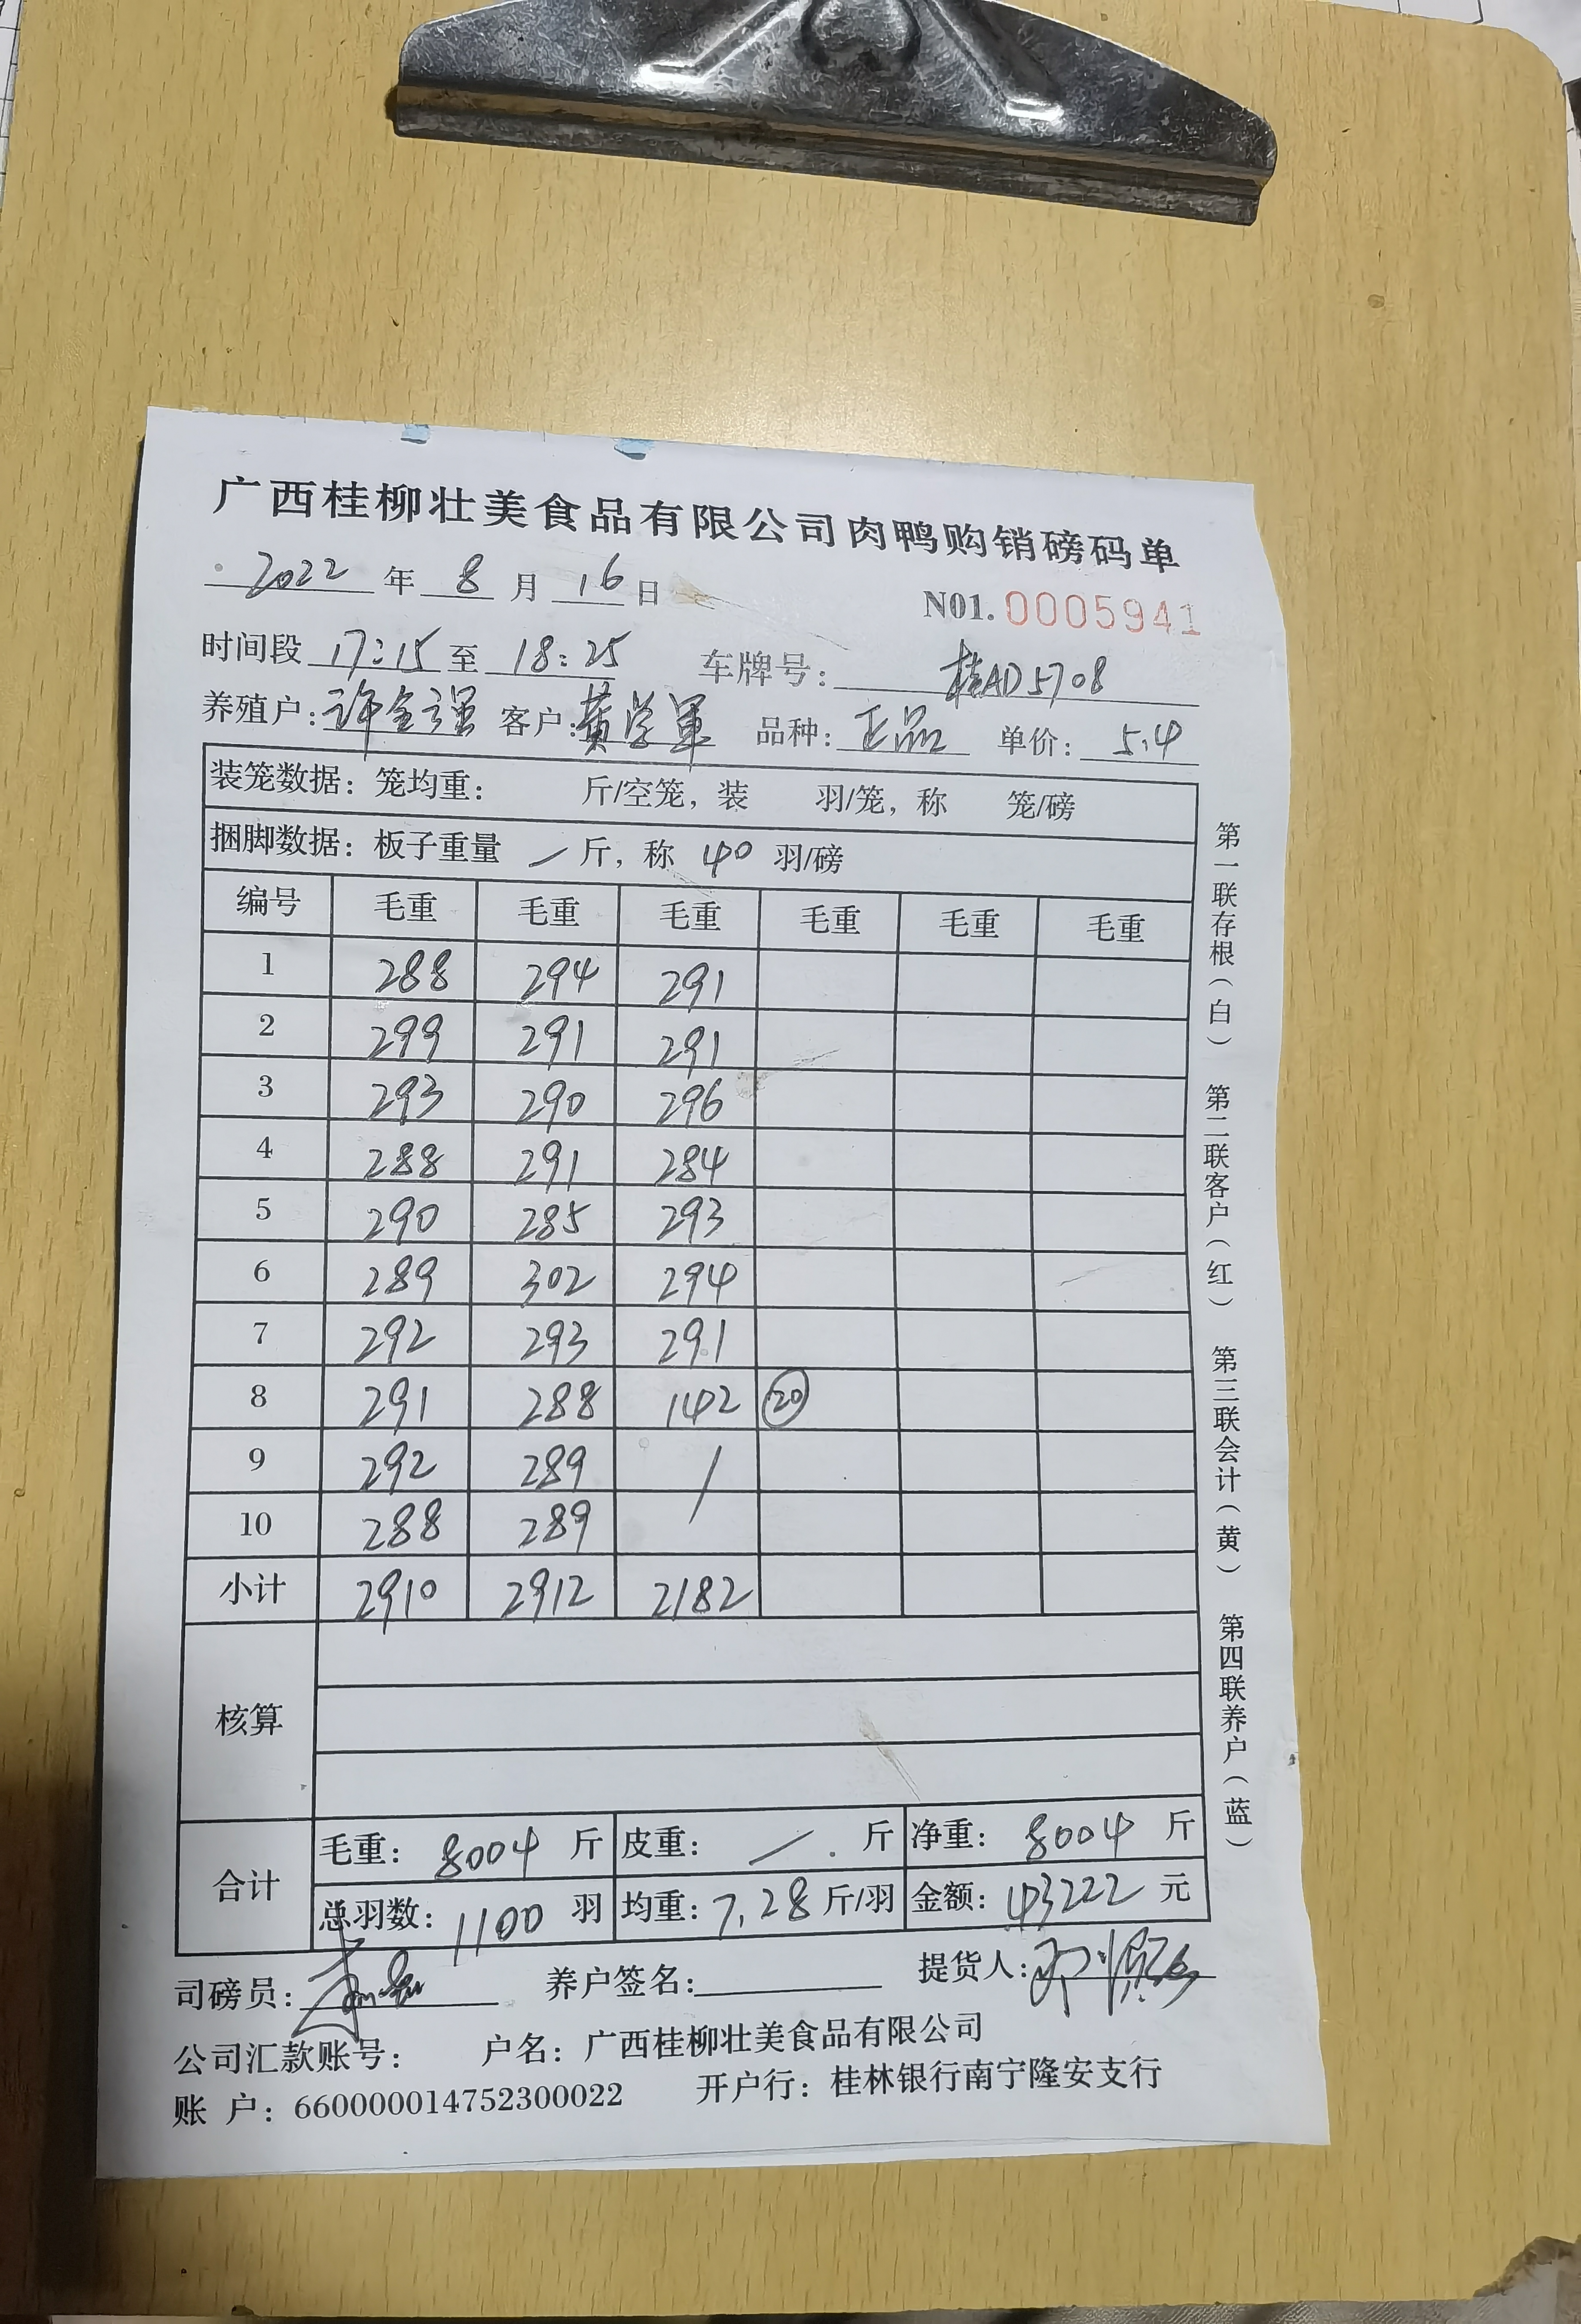 广西桂柳壮美食品有限公司肉鸭购销磅码单
2022 年 8 月 16 日 N01. 0005941
时间段 17:15 至 18:25 车牌号: 桂AD5708
养殖户: 许金强 客户: 黄学军 品种: 正品 单价: 5.4
装笼数据: 笼均重: 斤/空笼, 装 羽/笼, 称 笼/磅
捆脚数据: 板子重量 / 斤, 称 40 羽/磅
编号 毛重 毛重 毛重 毛重 毛重 毛重
1 288 294 291
2 299 291 291
3 293 290 296
4 288 291 284
5 290 285 293
6 289 302 294
7 292 293 291
8 291 288 142 20
9 292 289 /
10 288 289
小计 2910 2912 2182
核算
合计
毛重: 8004 斤 皮重: / 斤 净重: 8004 斤
总羽数: 1100 羽 均重: 7.28 斤/羽 金额: 43222 元
司磅员: 养户签名: 提货人:
公司汇款账号: 户名: 广西桂柳壮美食品有限公司
账 户: 660000014752300022 开户行: 桂林银行南宁隆安支行
第一联存根(白) 第二联客户(红) 第三联会计(黄) 第四联养户(蓝)